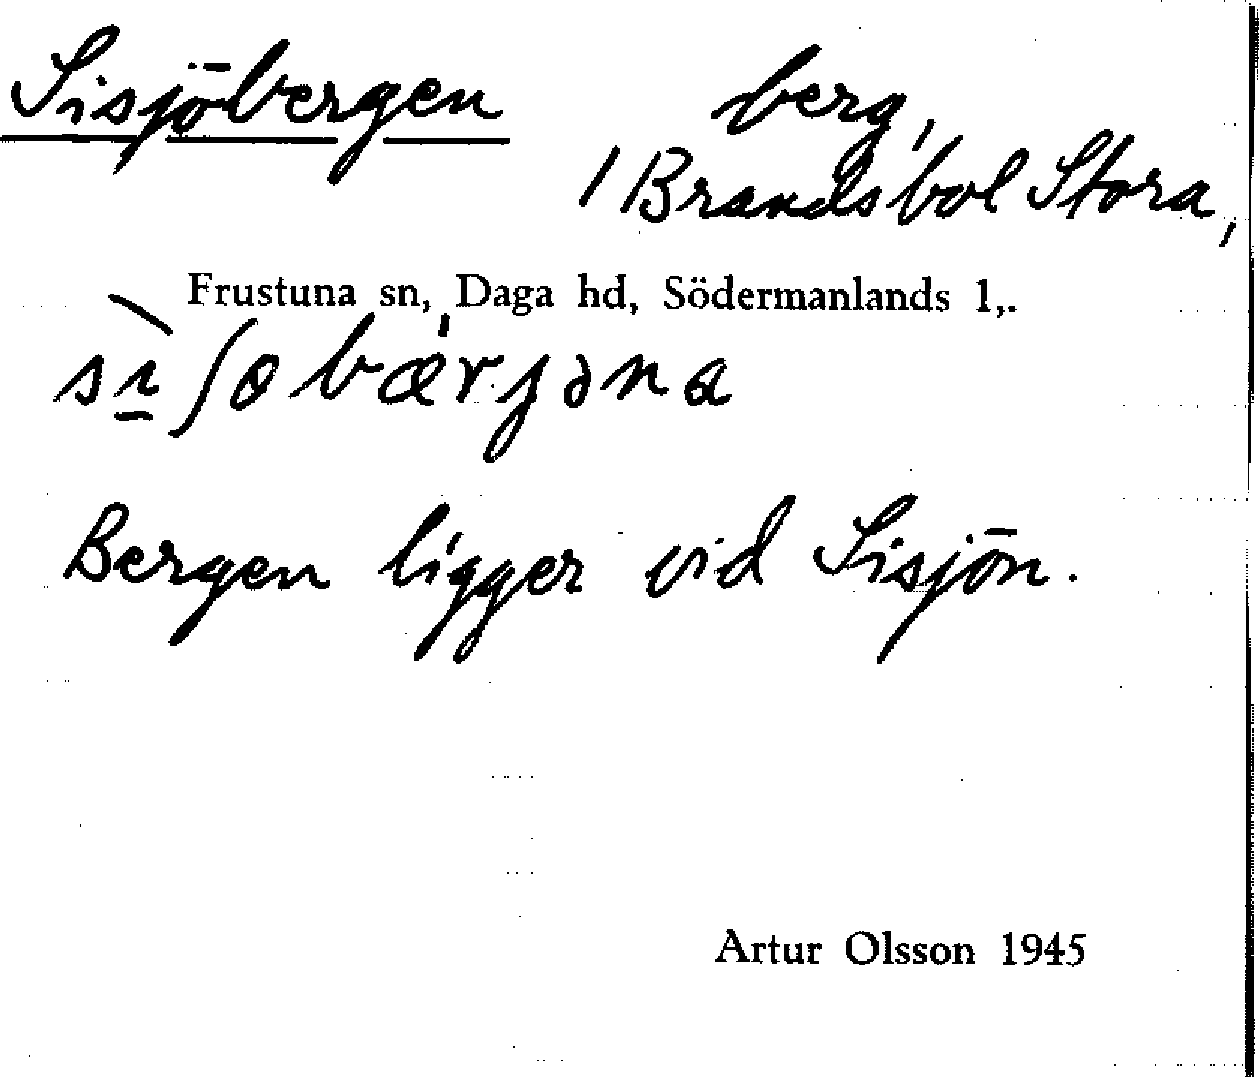 Sisjöbergen berg,
/ Brandsbol Stora,
Frustuna sn, Daga hd, Södermanlands l,.
sı̱̀ʃøbǽrjəna
Bergen ligger vid Sisjön.
Artur Olsson 1945